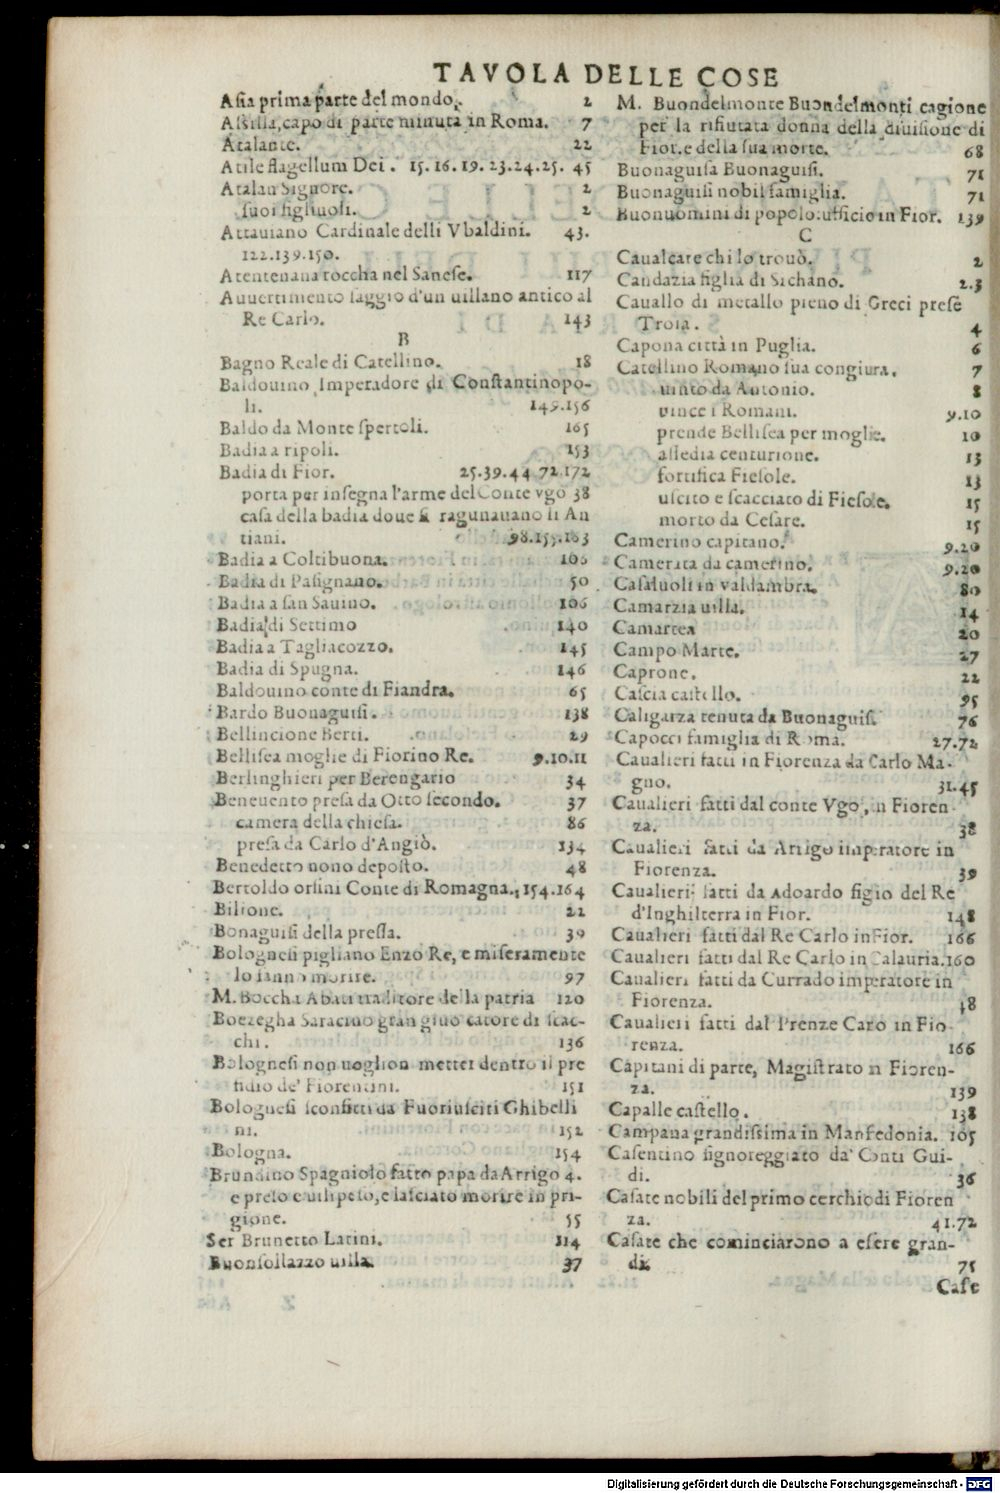 TAVOLA DELLE COSE
Asia prima parte del mondo. 2
Assilla, capo di parte minuta in Roma. 7
Atalante. 22
Atile flagellum Dei. 15.16.19.23.24.25. 45
Atalan Signore. 2
suoi figliuoli. 2
Attauiano Cardinale delli Vbaldini. 43.
122.139.150.
Atentenana roccha nel Sanese. 117
Auuertimento saggio d'un uillano antico al
Re Carlo. 143
B
Bagno Reale di Catellino. 18
Baldouino Imperadore di Constantinopo-
li. 149.156
Baldo da Monte spertoli. 165
Badia a ripoli. 153
Badia di Fior. 25.39.44 72.172
porta per insegna l'arme del Conte vgo 38
casa della badia doue si ragunauano li An
tiani. 98.155.163
Badia a Coltibuona. 106
Badia di Pasignano. 50
Badia a san Sauino. 106
Badia di Settimo 140
Badia a Tagliacozzo. 145
Badia di Spugna. 146
Baldouino conte di Fiandra. 65
Bardo Buonaguisi. 138
Bellincione Berti. 29
Bellisea moglie di Fiorino Re. 9.10.11
Berlinghieri per Berengario 34
Beneuento presa da Otto secondo. 37
camera della chiesa. 86
presa da Carlo d'Angiò. 134
Benedetto nono deposto. 48
Bertoldo orsini Conte di Romagna. 154.164
Bilione. 22
Bonaguisi della pressa. 39
Bolognesi pigliano Enzo Re, e miseramente
lo fanno morire. 97
M. Boccha Abati traditore della patria 120
Boezegha Saracino gran giuocatore di scac-
chi. 136
Bolognesi non uoglion metter dentro il pre
sidio de' Fiorentini. 151
Bolognesi sconfitti da Fuoriusciti Ghibelli
ni. 152
Bologna. 154
Brundino Spagniolo fatto papa da Arrigo 4.
e preso e uilipeso, e lasciato morire in pri-
gione. 55
Ser Brunetto Latini. 114
Buonsollazzo uilla. 37
M. Buondelmonte Buondelmonti cagione
per la rifiutata donna della diuisione di
Fior. e della sua morte. 68
Buonaguisa Buonaguisi. 71
Buonaguisi nobil famiglia. 71
Buonuomini di popolo: ufficio in Fior. 139
C
Caualcare chi lo trouò. 2
Candazia figlia di Sichano. 2.3
Cauallo di metallo pieno di Greci prese
Troia. 4
Capona città in Puglia. 6
Catellino Romano sua congiura. 7
uinto da Antonio. 8
uince i Romani. 9.10
prende Bellisea per moglie. 10
assedia centurione. 13
fortifica Fiesole. 13
uscito e scacciato di Fiesole. 15
morto da Cesare. 15
Camerino capitano. 9.20
Camerata da camerino. 9.20
Casiuoli in valdambra. 80
Camarzia uilla. 14
Camartea 20
Campo Marte. 27
Caprone. 22
Cascia castello. 95
Caligarza tenuta da Buonaguisi. 76
Capocci famiglia di Roma. 27.72
Caualieri fatti in Fiorenza da Carlo Ma-
gno. 31.45
Caualieri fatti dal conte Vgo, in Fioren-
za. 38
Caualieri fatti da Arrigo imperatore in
Fiorenza. 39
Caualieri fatti da Adoardo figio del Re
d'Inghilterra in Fior. 148
Caualieri fatti dal Re Carlo in Fior. 166
Caualieri fatti dal Re Carlo in Calauria. 160
Caualieri fatti da Currado imperatore in
Fiorenza. 48
Caualieri fatti dal Prenze Caro in Fio-
renza. 166
Capitani di parte, Magistrato in Fioren-
za. 139
Capalle castello. 138
Campana grandissima in Manfedonia. 105
Casentino signoreggiato da' Conti Gui-
di. 36
Casate nobili del primo cerchio di Fioren
za. 41.72
Casate che cominciarono a esere gran-
di. 75
Case
Digitalisierung gefördert durch die Deutsche Forschungsgemeinschaft - DFG